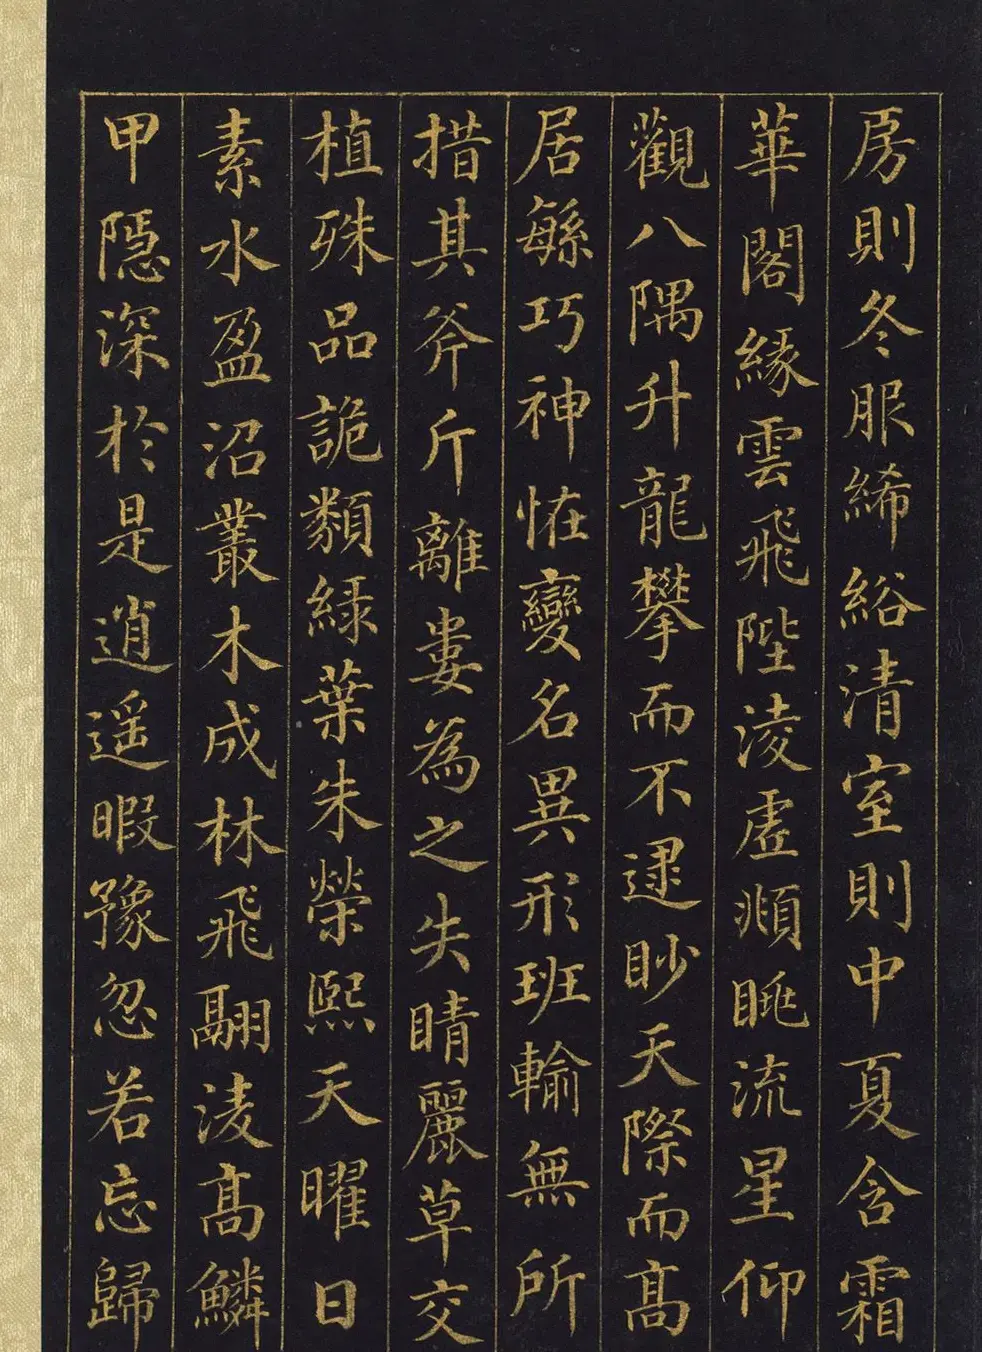 房則冬服絺綌清室則中夏含霜
華閣緣雲飛陛淩虛頫眺流星仰
觀八隅升龍攀而不逮眇天際而髙
居緐巧神恠變名異形班輸無所
措其斧斤離婁為之失睛麗草交
植殊品詭類緑葉朱榮熙天曜日
素水盈沼叢木成林飛翮淩髙鱗
甲隱深於是逍遥暇豫忽若忘歸